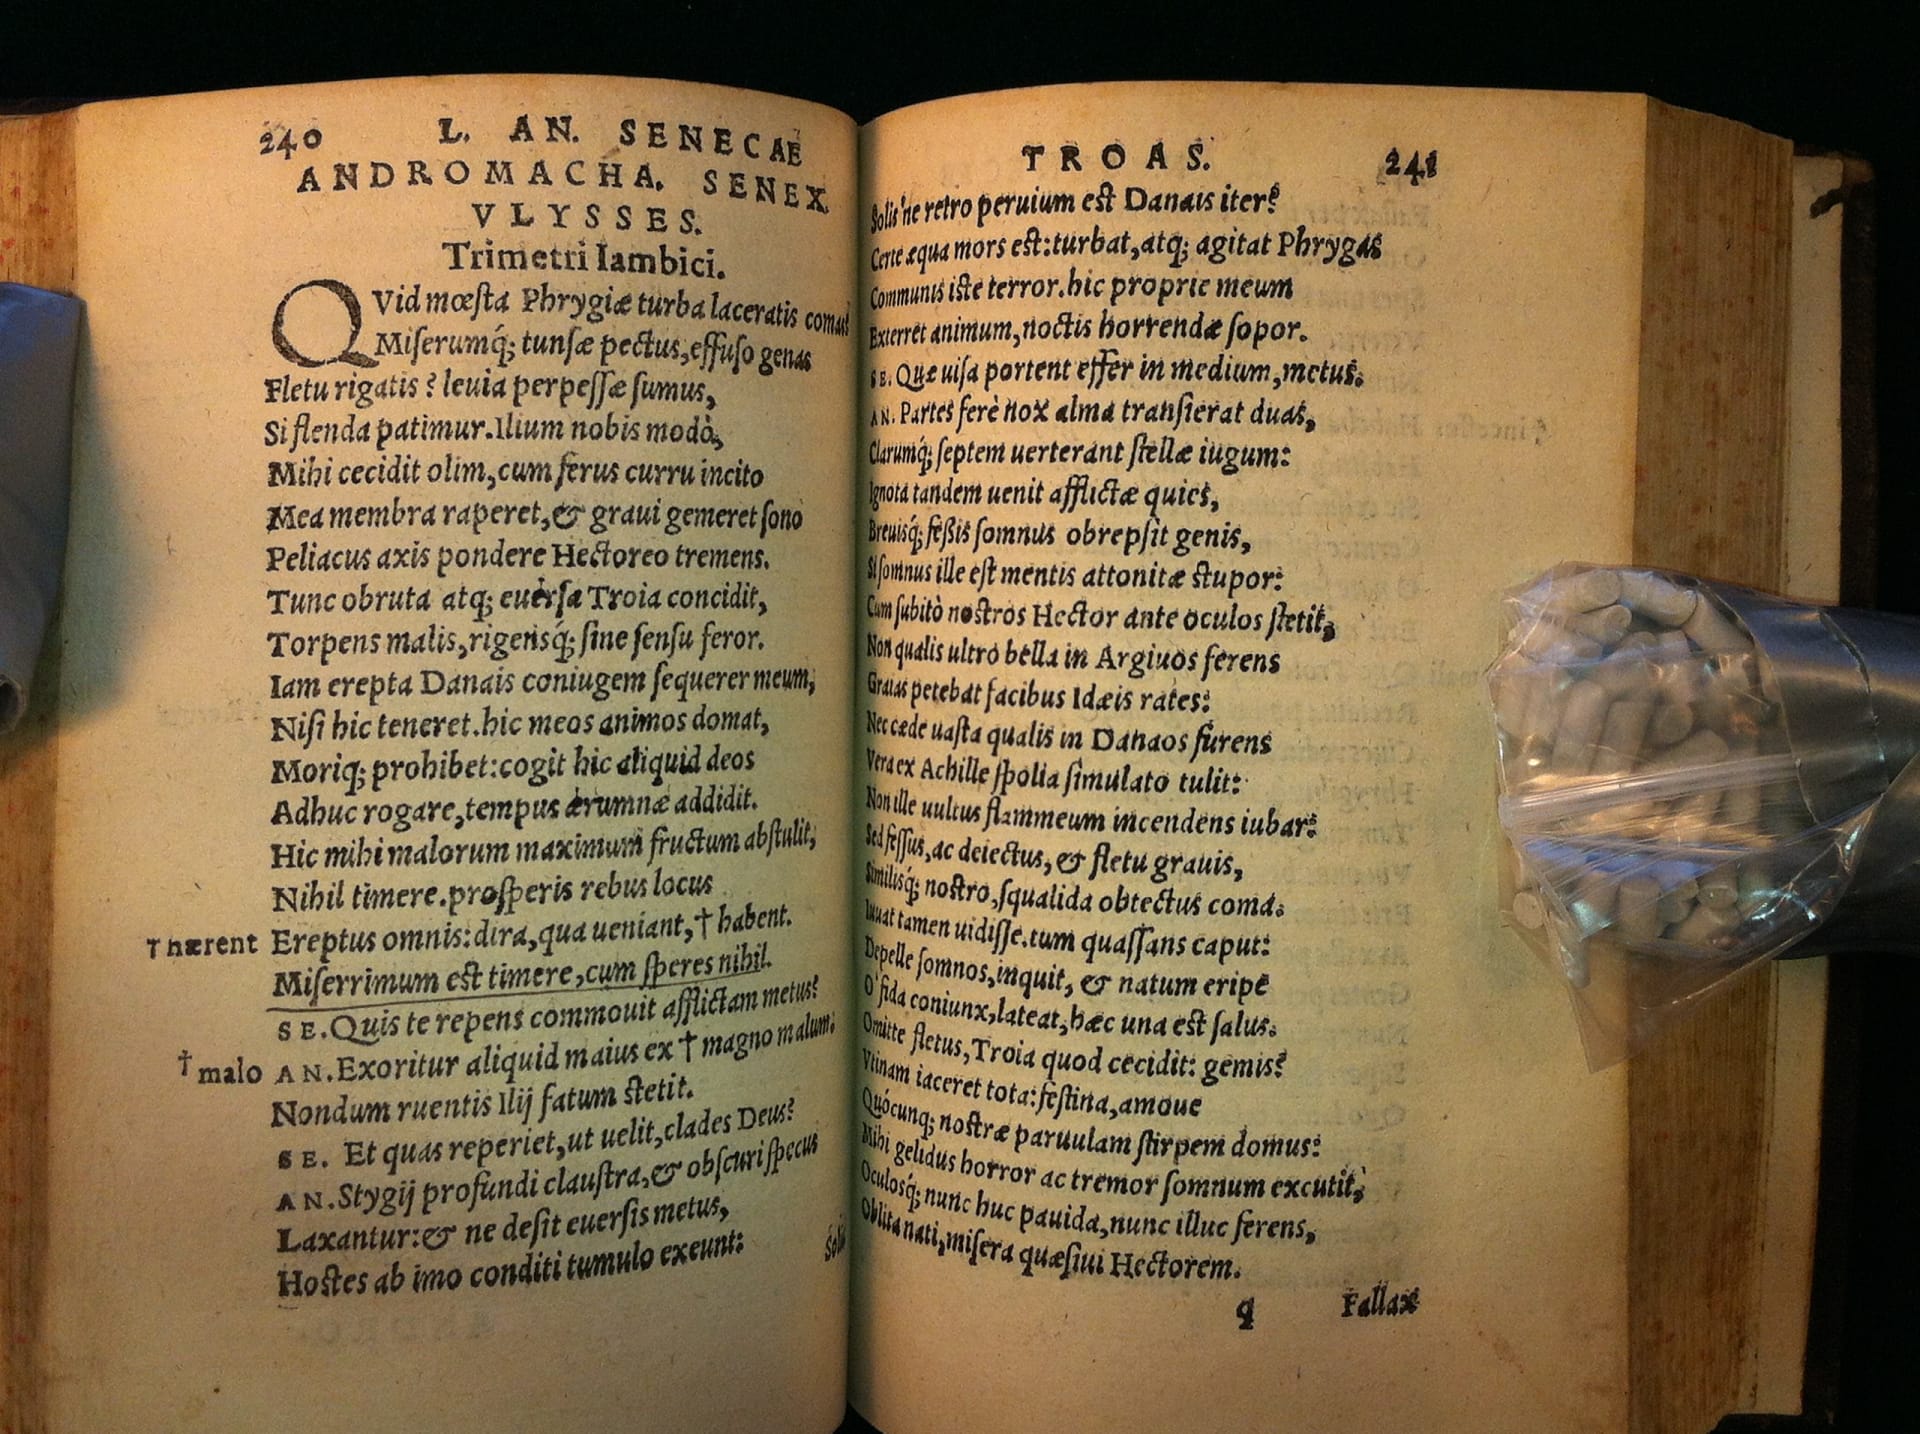 240 L. AN. SENECAE
ANDROMACHA. SENEX.
VLYSSES.
Trimetri Iambici.
QVid mœſta Phrygiæ turba laceratis comas?
Miſerumq́; tunſæ pectus, effuſo genas
Fletu rigatis? leuia perpeſſæ ſumus,
Si flenda patimur. Ilium nobis modò,
Mihi cecidit olim, cum ferus curru incito
Mea membra raperet, & graui gemeret ſono
Peliacus axis pondere Hectoreo tremens.
Tunc obruta atq; euerſa Troia concidit,
Torpens malis, rigensq́; ſine ſenſu feror.
Iam erepta Danais coniugem ſequerer meum,
Niſi hic teneret. hic meos animos domat,
Moriq; prohibet: cogit hic aliquid deos
Adhuc rogare, tempus ærumnæ addidit.
Hic mihi malorum maximum fructum abſtulit,
Nihil timere. proſperis rebus locus
† hærent Ereptus omnis: dira, qua ueniant, † habent.
Miſerrimum est timere, cum ſperes nihil.
SE. Quis te repens commouit afflictam metus?
† malo AN. Exoritur aliquid maius ex † magno malum.
Nondum ruentis Ilij fatum stetit.
SE. Et quas reperiet, ut uelit, clades Deus?
AN. Stygij profundi clauſtra, & obſcuri ſpecus
Laxantur: & ne deſit euerſis metus,
Hostes ab imo conditi tumulo exeunt:
Solis
TROAS. 241
Solis'ne retro peruium est Danais iter?
Certe æqua mors est: turbat, atq; agitat Phrygas
Communis iste terror. hic proprie meum
Exterret animum, noctis horrendæ ſopor.
SE. Quæ uiſa portent effer in medium, metus.
AN. Partes ferè nox alma tranſierat duas,
Clarumq́; ſeptem uerterant ſtellæ iugum:
Ignota tandem uenit afflictæ quies,
Breuisq́; feßis ſomnus obrepſit genis,
Si ſomnus ille eſt mentis attonitæ stupor:
Cum ſubitò nostros Hector ante oculos ſtetit,
Non qualis ultro bella in Argiuos ferens
Graias petebat facibus Idæis rates:
Nec cæde uaſta qualis in Danaos furens
Vera ex Achille ſpolia ſimulato tulit:
Non ille uultus flammeum incendens iubar:
Sed feſſus, ac deiectus, & fletu grauis,
Similisq́; nostro, ſqualida obtectus coma.
Iuuat tamen uidiſſe. tum quaſſans caput:
Depelle ſomnos, inquit, & natum eripe
O' fida coniunx, lateat, hæc una est ſalus.
Omitte fletus, Troia quod cecidit: gemis?
Vtinam iaceret tota: feſtina, amoue
Quócunq; nostræ paruulam ſtirpem domus:
Mihi gelidus horror ac tremor ſomnum excutit,
Oculosq́; nunc huc pauida, nunc illuc ferens,
Oblita nati, miſera quæſiui Hectorem.
q Fallax